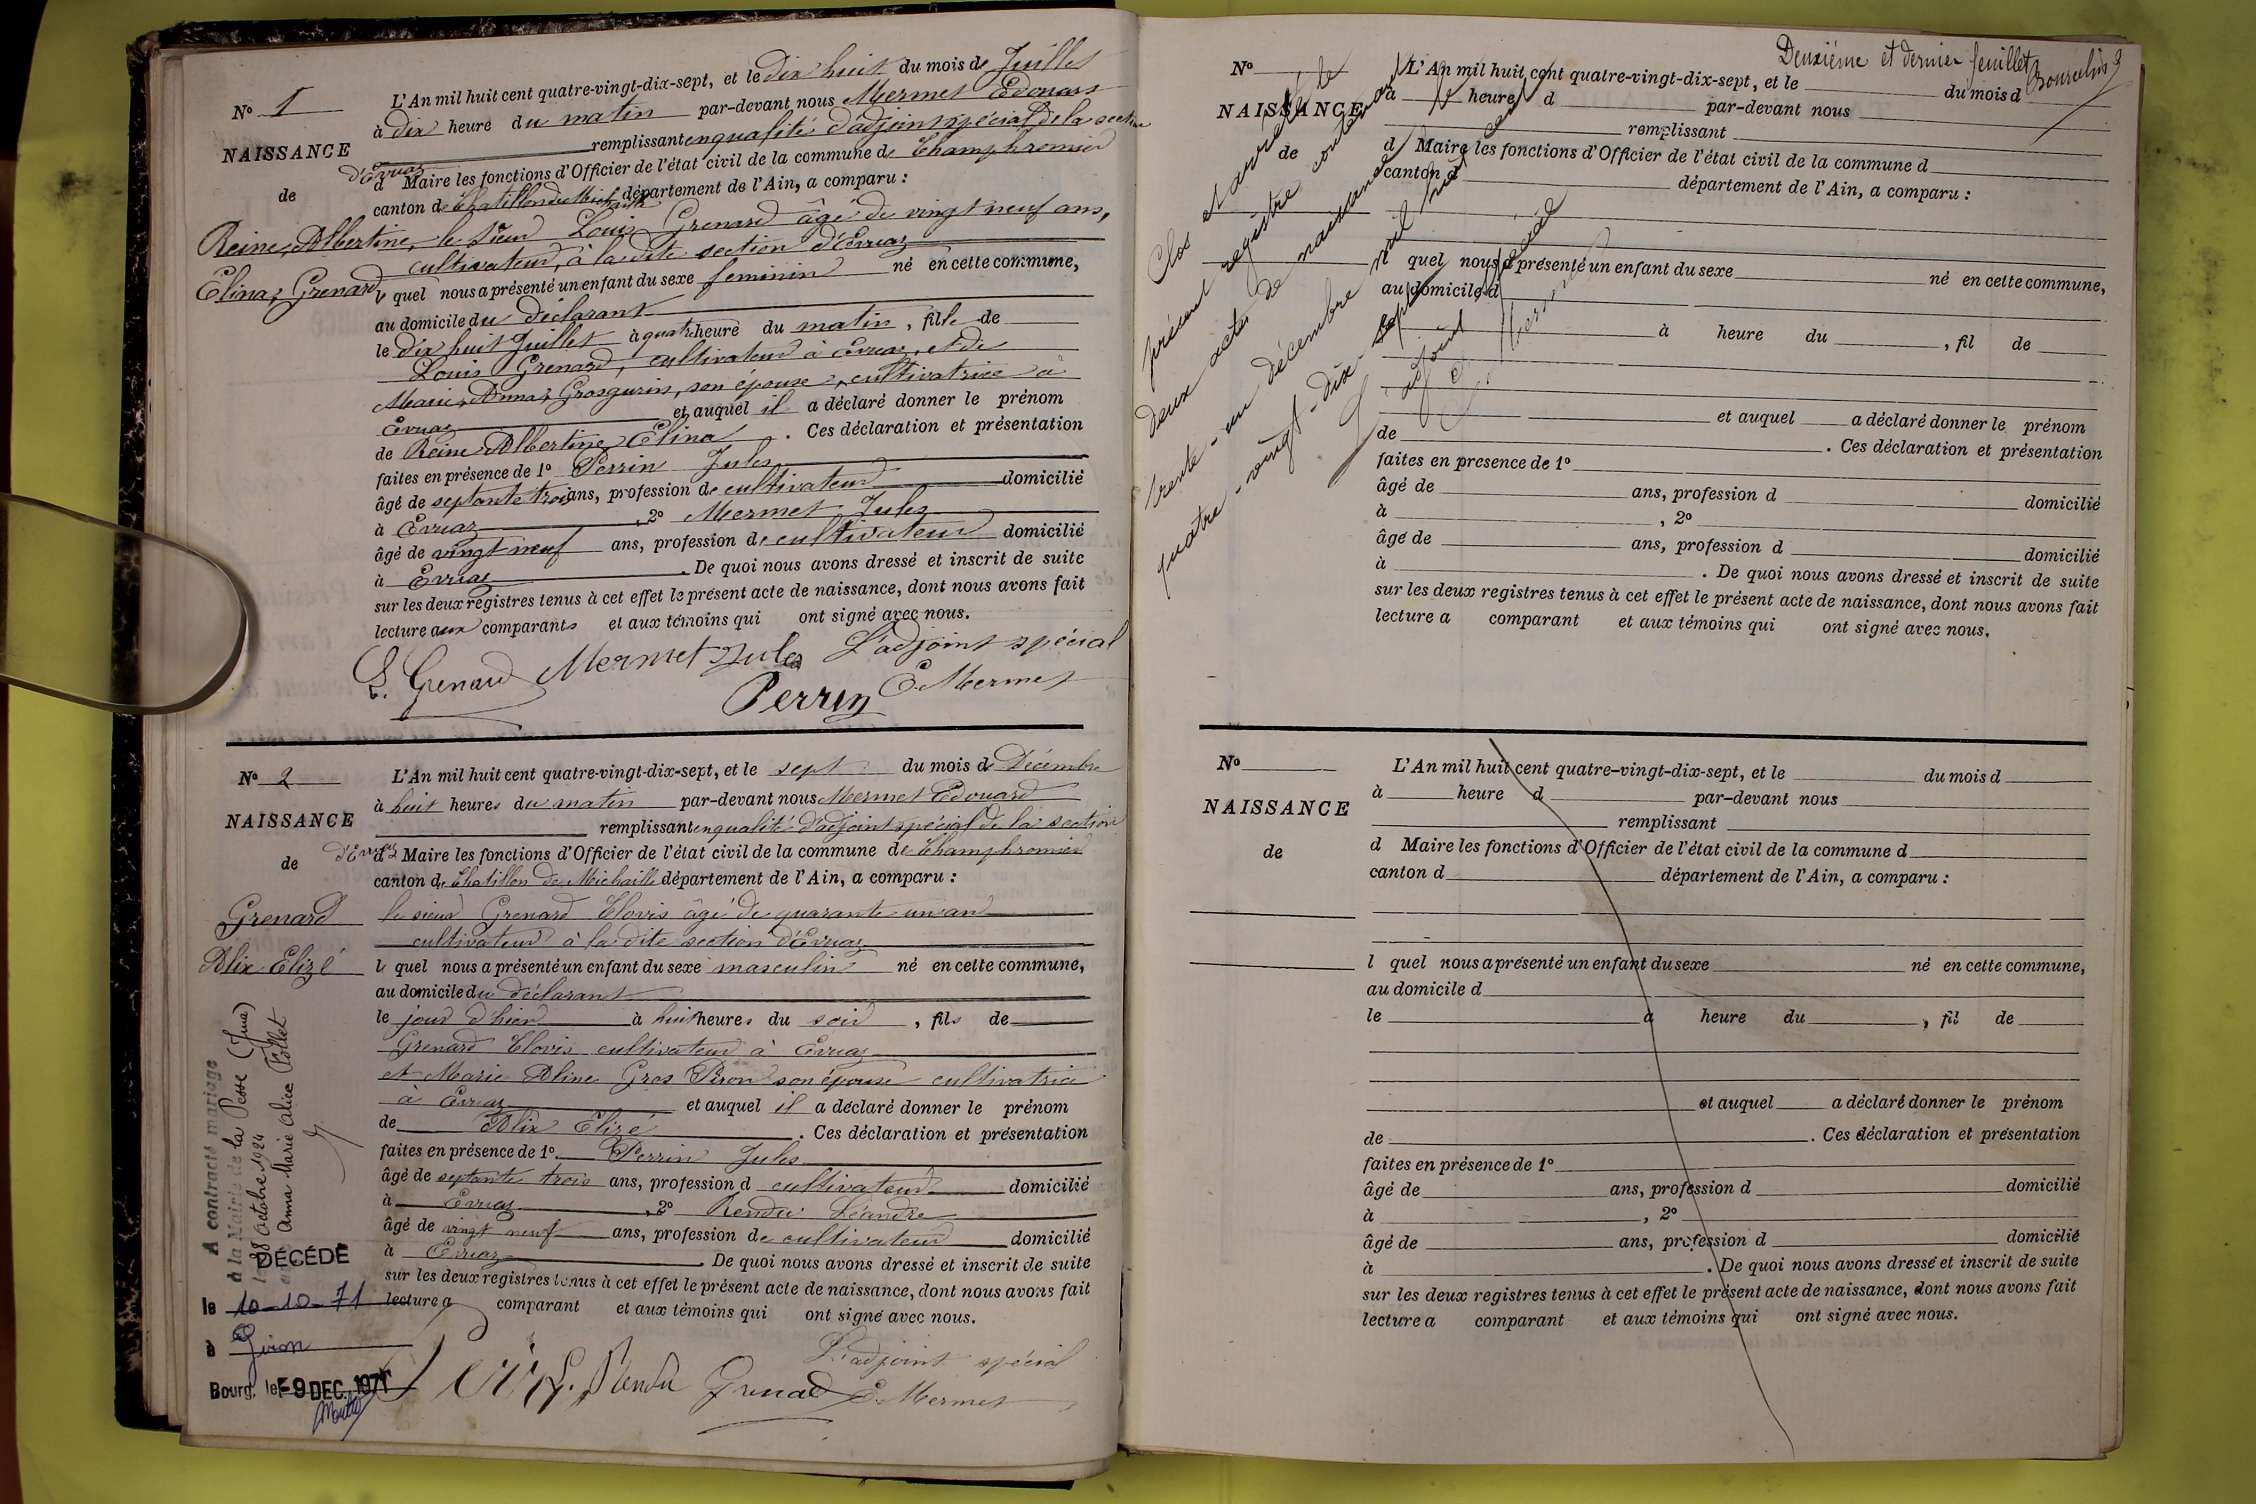 L'An mil huit cent quatre-vingt-dix-sept, et le dix huit du mois de Juillet
N° 1
à dix heure du matin par-devant nous Mermet Edouard
remplissant en qualité d'adjoint spécial de la section
NAISSANCE
d'Evuaz
d Maire les fonctions d'Officier de l'état civil de la commune de Champfromier
de
canton de Chatillon de Michaille département de l'Ain, a comparu :
Reine, Albertine,
Elina, Grenard
le sieur Louis Grenard âgé de vingt neuf ans,
cultivateur, à la dite section d'Evuaz
le quel nous a présenté un enfant du sexe feminin né en cette commune,
au domicile du déclarant
le dix huit Juillet à quatre heure du matin, fille de
Louis Grenard, cultivateur à Evuaz, et de
Marie, Anna, Grosgurin, son épouse, cultivatrice à
Evuaz et auquel il a déclaré donner le prénom
de Reine Albertine Elina. Ces déclaration et présentation
faites en présence de 1° Perrin Jules
âgé de septante trois ans, profession de cultivateur domicilié
à Evuaz, 2° Mermet Jules
âgé de vingt neuf ans, profession de cultivateur domicilié
à Evuaz. De quoi nous avons dressé et inscrit de suite
sur les deux registres tenus à cet effet le présent acte de naissance, dont nous avons fait
lecture aux comparants et aux témoins qui ont signé avec nous.
L. Grenard Mermet Jules L'adjoint spécial
Perrin E. Mermet
N° 2
L'An mil huit cent quatre-vingt-dix-sept, et le sept du mois de Décembre
à huit heures du matin par-devant nous Mermet Edouard
remplissant en qualité d'adjoint spécial de la section
NAISSANCE
d'Evuaz
d Maire les fonctions d'Officier de l'état civil de la commune de Champfromier
de
canton de Chatillon de Michaille département de l'Ain, a comparu :
Grenard
Alix Elizé
le sieur Grenard Clovis âgé de quarante un an
cultivateur à la dite section d'Evuaz
le quel nous a présenté un enfant du sexe masculin né en cette commune,
au domicile du déclarant
le jour d'hier à huit heures du soir, fils de
Grenard Clovis cultivateur à Evuaz
et Marie Aline Gros Piron son épouse cultivatrice
à Evuaz et auquel il a déclaré donner le prénom
de Alix Elizé. Ces déclaration et présentation
faites en présence de 1° Perrin Jules
âgé de septante trois ans, profession d cultivateur domicilié
à Evuaz, 2° Rendu Léandre
âgé de vingt neuf ans, profession de cultivateur domicilié
à Evuaz. De quoi nous avons dressé et inscrit de suite
sur les deux registres tenus à cet effet le présent acte de naissance, dont nous avons fait
lecture a comparant et aux témoins qui ont signé avec nous.
L'adjoint spécial
L. Rendu Grenard E. Mermet
A contracté mariage
à la Mairie de la Pesse (Jura)
le 28 Octobre 1924
Anna Marie Alice Pollet
DÉCÉDÉ
le 10-10-71
à Giron
Bourg, le -9 DEC. 1971
Deuxième et dernier feuillet
N°
L'An mil huit cent quatre-vingt-dix-sept, et le du mois d
à heure d par-devant nous
NAISSANCE
remplissant
de
d Maire les fonctions d'Officier de l'état civil de la commune d
canton d département de l'Ain, a comparu :
l quel nous a présenté un enfant du sexe né en cette commune,
au domicile d
le à heure du , fil de
et auquel a déclaré donner le prénom
de . Ces déclaration et présentation
faites en presence de 1°
âgé de ans, profession d domicilié
à , 2°
âgé de ans, profession d domicilié
à . De quoi nous avons dressé et inscrit de suite
sur les deux registres tenus à cet effet le présent acte de naissance, dont nous avons fait
lecture a comparant et aux témoins qui ont signé avec nous.
Clos et arrêté le
présent registre contenant
deux actes de naissance le
trente-un décembre mil huit cent
quatre-vingt-dix-sept
L'adjoint spécial
E. Mermet
N°
L'An mil huit cent quatre-vingt-dix-sept, et le du mois d
à heure d par-devant nous
NAISSANCE
remplissant
de
d Maire les fonctions d'Officier de l'état civil de la commune d
canton d département de l'Ain, a comparu :
l quel nous a présenté un enfant du sexe né en cette commune,
au domicile d
le à heure du , fil de
et auquel a déclaré donner le prénom
de . Ces déclaration et présentation
faites en présence de 1°
âgé de ans, profession d domicilié
à , 2°
âgé de ans, profession d domicilié
à . De quoi nous avons dressé et inscrit de suite
sur les deux registres tenus à cet effet le présent acte de naissance, dont nous avons fait
lecture a comparant et aux témoins qui ont signé avec nous.